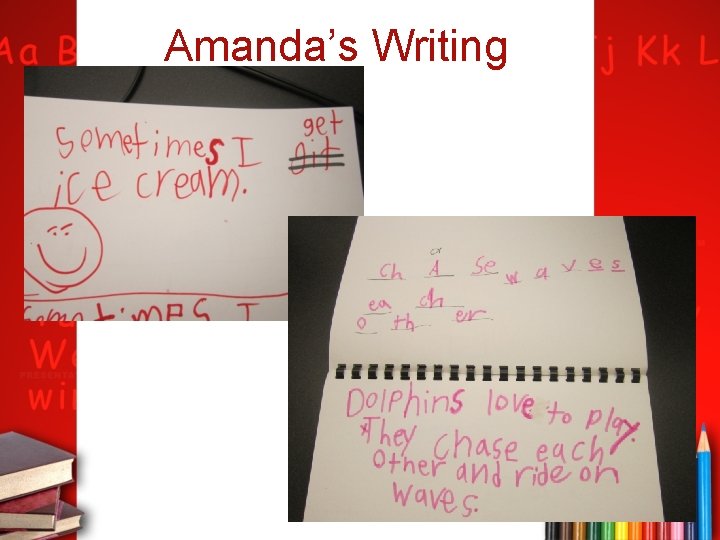 Amanda's Writing
Aa B
j Kk L
get
sometimes I git
ice cream.
sometimes I
or
ch A se w a v e s
ea ch
o th er
Dolphins love to play.
They chase each
other and ride on
waves.
PRESENTA
wi